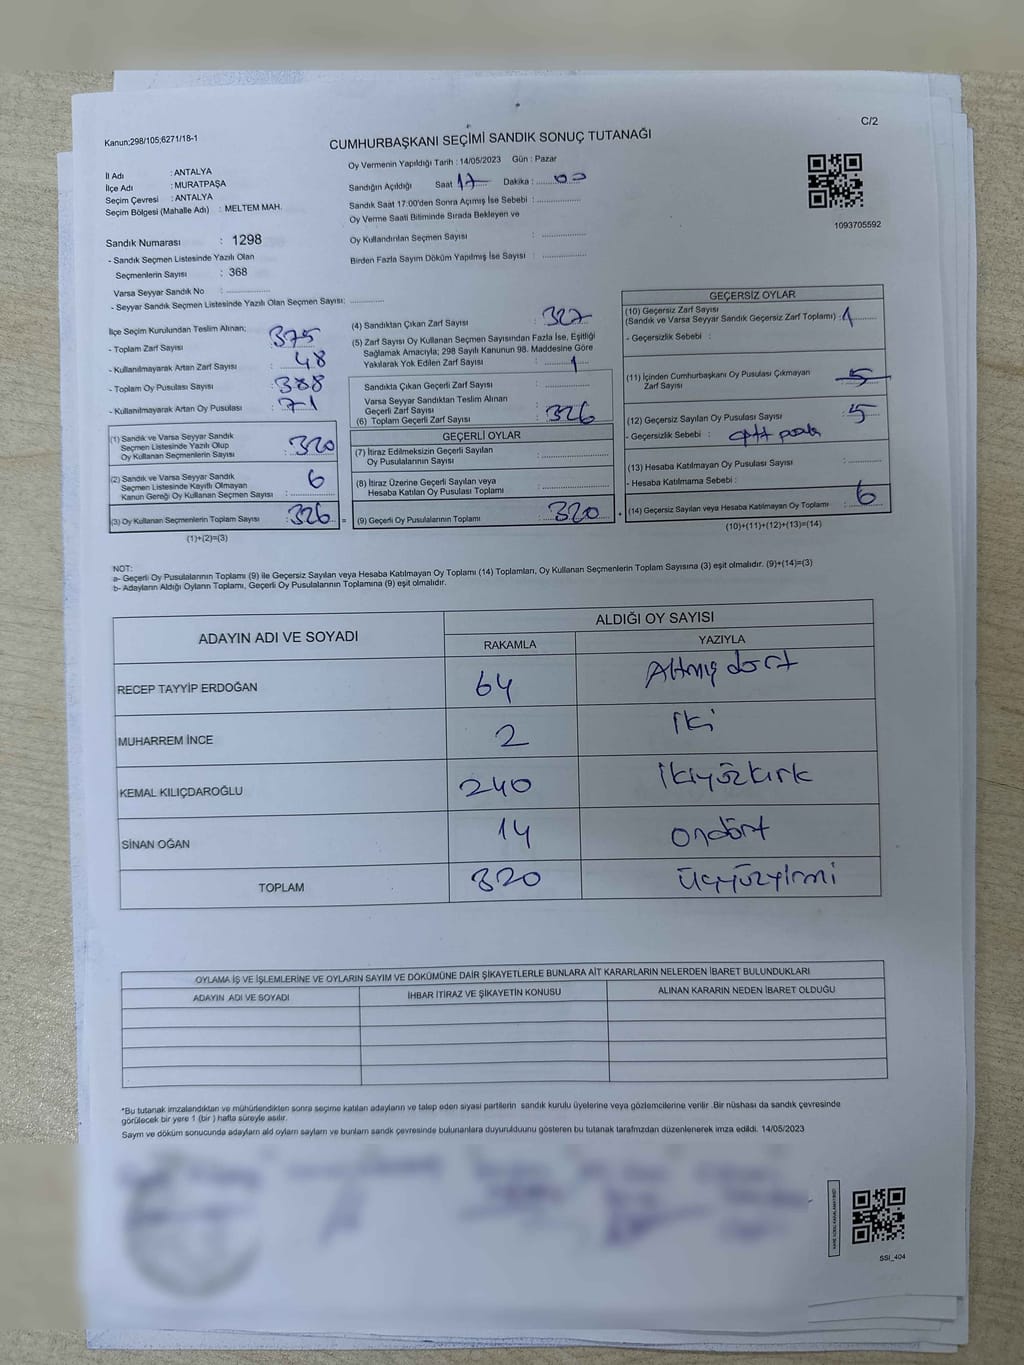 Kanun;298/105;6271/18-1
C/2
CUMHURBAŞKANI SEÇİMİ SANDIK SONUÇ TUTANAĞI
İl Adı : ANTALYA
İlçe Adı : MURATPAŞA
Seçim Çevresi : ANTALYA
Seçim Bölgesi (Mahalle Adı) : MELTEM MAH.
Sandık Numarası : 1298
- Sandık Seçmen Listesinde Yazılı Olan
Seçmenlerin Sayısı : 368
Varsa Seyyar Sandık No :
- Seyyar Sandık Seçmen Listesinde Yazılı Olan Seçmen Sayısı:
Oy Vermenin Yapıldığı Tarih : 14/05/2023 Gün : Pazar
Sandığın Açıldığı Saat 17 Dakika : 00
Sandık Saat 17:00'den Sonra Açımış İse Sebebi :
Oy Verme Saati Bitiminde Sırada Bekleyen ve
Oy Kullandırılan Seçmen Sayısı :
Birden Fazla Sayım Döküm Yapılmış İse Sayısı :
1093705592
İlçe Seçim Kurulundan Teslim Alınan;
- Toplam Zarf Sayısı : 375
- Kullanılmayarak Artan Zarf Sayısı : 48
- Toplam Oy Pusulası Sayısı : 388
- Kullanılmayarak Artan Oy Pusulası : 71
(1) Sandık ve Varsa Seyyar Sandık
Seçmen Listesinde Yazılı Olup
Oy Kullanan Seçmenlerin Sayısı : 320
(2) Sandık ve Varsa Seyyar Sandık
Seçmen Listesinde Kayıtlı Olmayan
Kanun Gereği Oy Kullanan Seçmen Sayısı : 6
(3) Oy Kullanan Seçmenlerin Toplam Sayısı : 326 =
(1)+(2)=(3)
(4) Sandıktan Çıkan Zarf Sayısı : 327
(5) Zarf Sayısı Oy Kullanan Seçmen Sayısından Fazla İse, Eşitliği
Sağlamak Amacıyla; 298 Sayılı Kanunun 98. Maddesine Göre
Yakılarak Yok Edilen Zarf Sayısı : 1
Sandıkta Çıkan Geçerli Zarf Sayısı :
Varsay Seyyar Sandıktan Teslim Alınan
Geçerli Zarf Sayısı :
(6) Toplam Geçerli Zarf Sayısı : 326
GEÇERLİ OYLAR
(7) İtiraz Edilmeksizin Geçerli Sayılan
Oy Pusulalarının Sayısı :
(8) İtiraz Üzerine Geçerli Sayılan veya
Hesaba Katılan Oy Pusulası Toplamı :
(9) Geçerli Oy Pusulalarının Toplamı : 320 +
GEÇERSİZ OYLAR
(10) Geçersiz Zarf Sayısı
(Sandık ve Varsa Seyyar Sandık Geçersiz Zarf Toplamı) : 1
- Geçersizlik Sebebi :
(11) İçinden Cumhurbaşkanı Oy Pusulası Çıkmayan
Zarf Sayısı : 5
(12) Geçersiz Sayılan Oy Pusulası Sayısı : 5
- Geçersizlik Sebebi :
(13) Hesaba Katılmayan Oy Pusulası Sayısı :
- Hesaba Katılmama Sebebi :
(14) Geçersiz Sayılan veya Hesaba Katılmayan Oy Toplamı : 6
(10)+(11)+(12)+(13)=(14)
NOT:
a- Geçerli Oy Pusulalarının Toplamı (9) ile Geçersiz Sayılan veya Hesaba Katılmayan Oy Toplamı (14) Toplamları, Oy Kullanan Seçmenlerin Toplam Sayısına (3) eşit olmalıdır. (9)+(14)=(3)
b- Adayların Aldığı Oyların Toplamı, Geçerli Oy Pusulalarının Toplamına (9) eşit olmalıdır.
ADAYIN ADI VE SOYADI
ALDIĞI OY SAYISI
RAKAMLA YAZIYLA
RECEP TAYYİP ERDOĞAN 64 Altmış dört
MUHARREM İNCE 2 iki
KEMAL KILIÇDAROĞLU 240 ikiyüzkırk
SİNAN OĞAN 14 ondört
TOPLAM 320 üçyüzyirmi
OYLAMA İŞ VE İŞLEMLERİNE VE OYLARIN SAYIM VE DÖKÜMÜNE DAİR ŞİKAYETLERLE BUNLARA AİT KARARLARIN NELERDEN İBARET BULUNDUKLARI
ADAYIN ADI VE SOYADI İHBAR İTİRAZ VE ŞİKAYETİN KONUSU ALINAN KARARIN NEDEN İBARET OLDUĞU
*Bu tutanak imzalandıktan ve mühürlendikten sonra seçime katılan adayların ve talep eden siyasi partilerin sandık kurulu üyelerine veya gözlemcilerine verilir .Bir nüshası da sandık çevresinde
görülecek bir yere 1 (bir ) hafta süreyle asılır.
Sayım ve döküm sonucunda adayların aldı oyların sayıları ve bunların sandık çevresinde bulunanlara duyurulduunu gösteren bu tutanak tarafımızdan düzenlenerek imza edildi. 14/05/2023
SSI_404